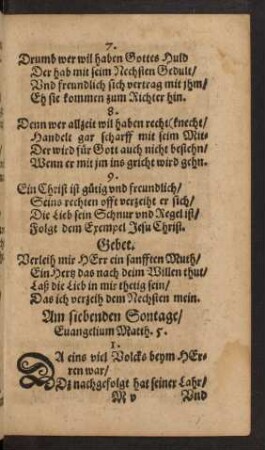 7.
Drumb wer wil haben Gottes Huld
Der hab mit seim Nechsten Gedult/
Vnd freundlich sich vertrag mit jhm/
Eh sie kommen zum Richter hin.
8.
Denn wer allzeit wil haben recht/
Handelt gar scharff mit seim Mitknecht/
Der wird für Gott auch nicht bestehn/
Wenn er mit jm ins gricht wird gehn.
9.
Ein Christ ist gütig vnd freundlich/
Seins rechten offt verzeiht er sich/
Die Lieb sein Schnur vnd Regel ist/
Folgt dem Exempel Jesu Christ.
Gebet.
Verleih mir HErr ein sanfften Muth/
Ein Hertz das nach deim Willen thut/
Laß die Lieb in mir thetig sein/
Das ich verzeih dem Nechsten mein.
Am siebenden Sontage/
Euangelium Matth. 5.
1.
DA eins viel Volcks beym HEr-
ren war/
Dz nachgefolgt hat seiner Lahr/
M v Vnd